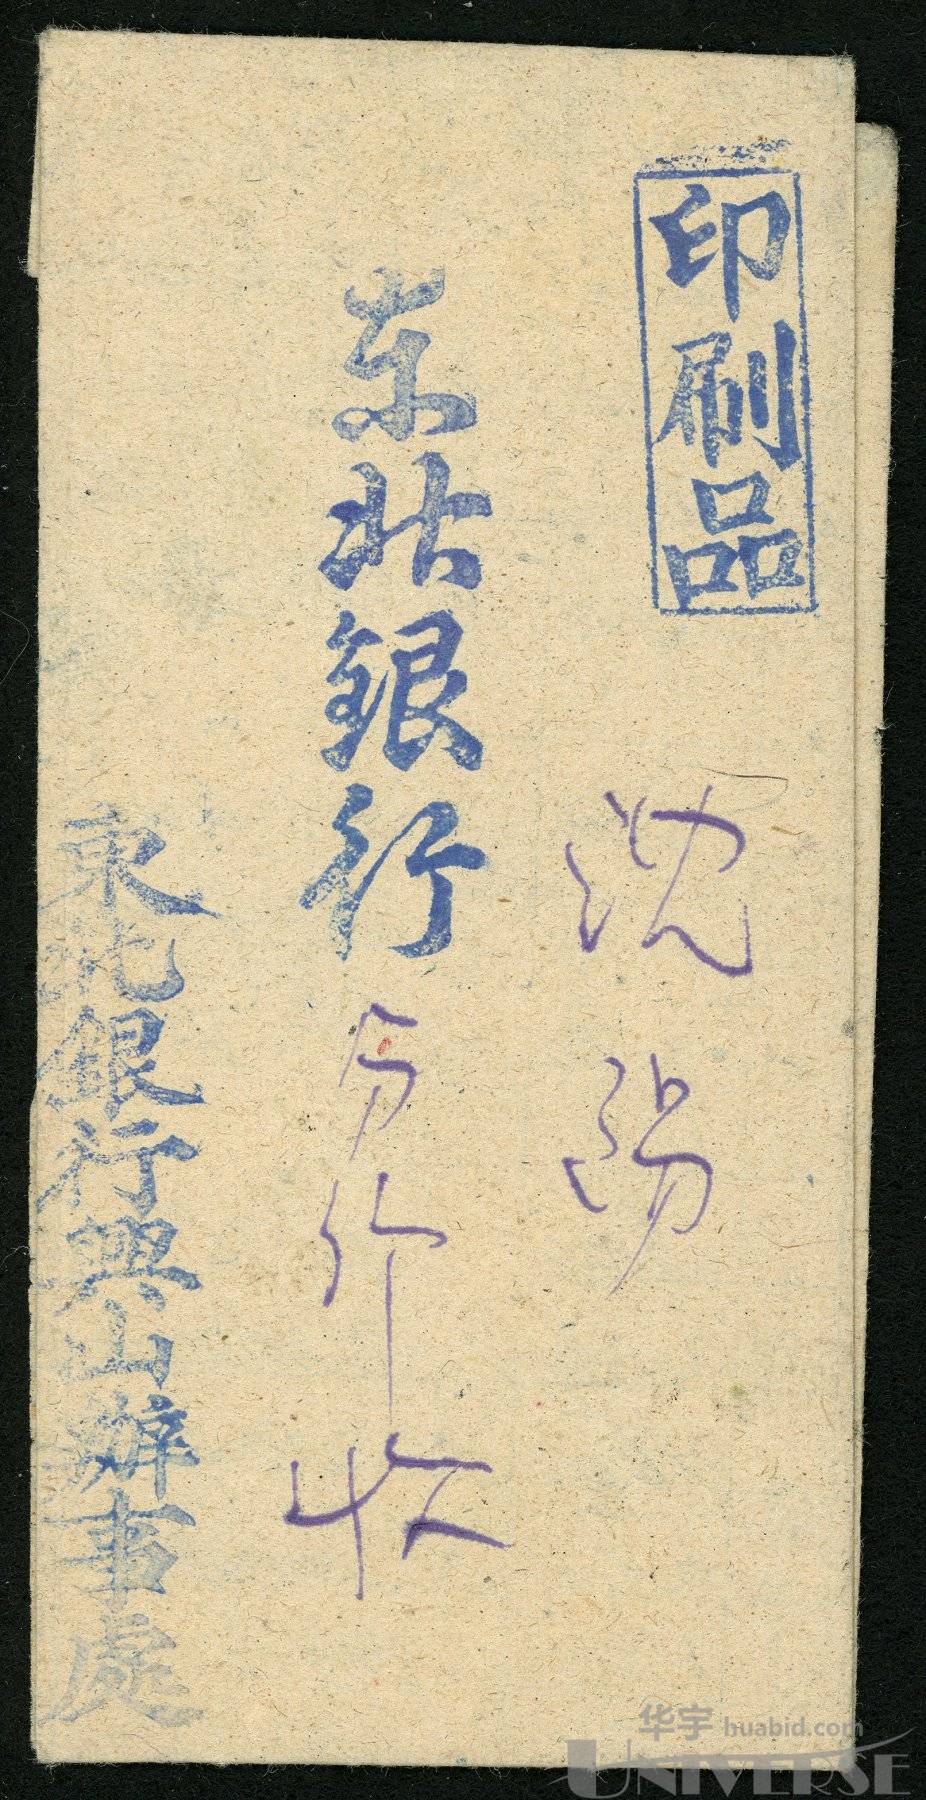 印刷品
沈阳
东北銀行分行收
東北銀行興山辦事處
华宇 huabid.com
UNIVERSE